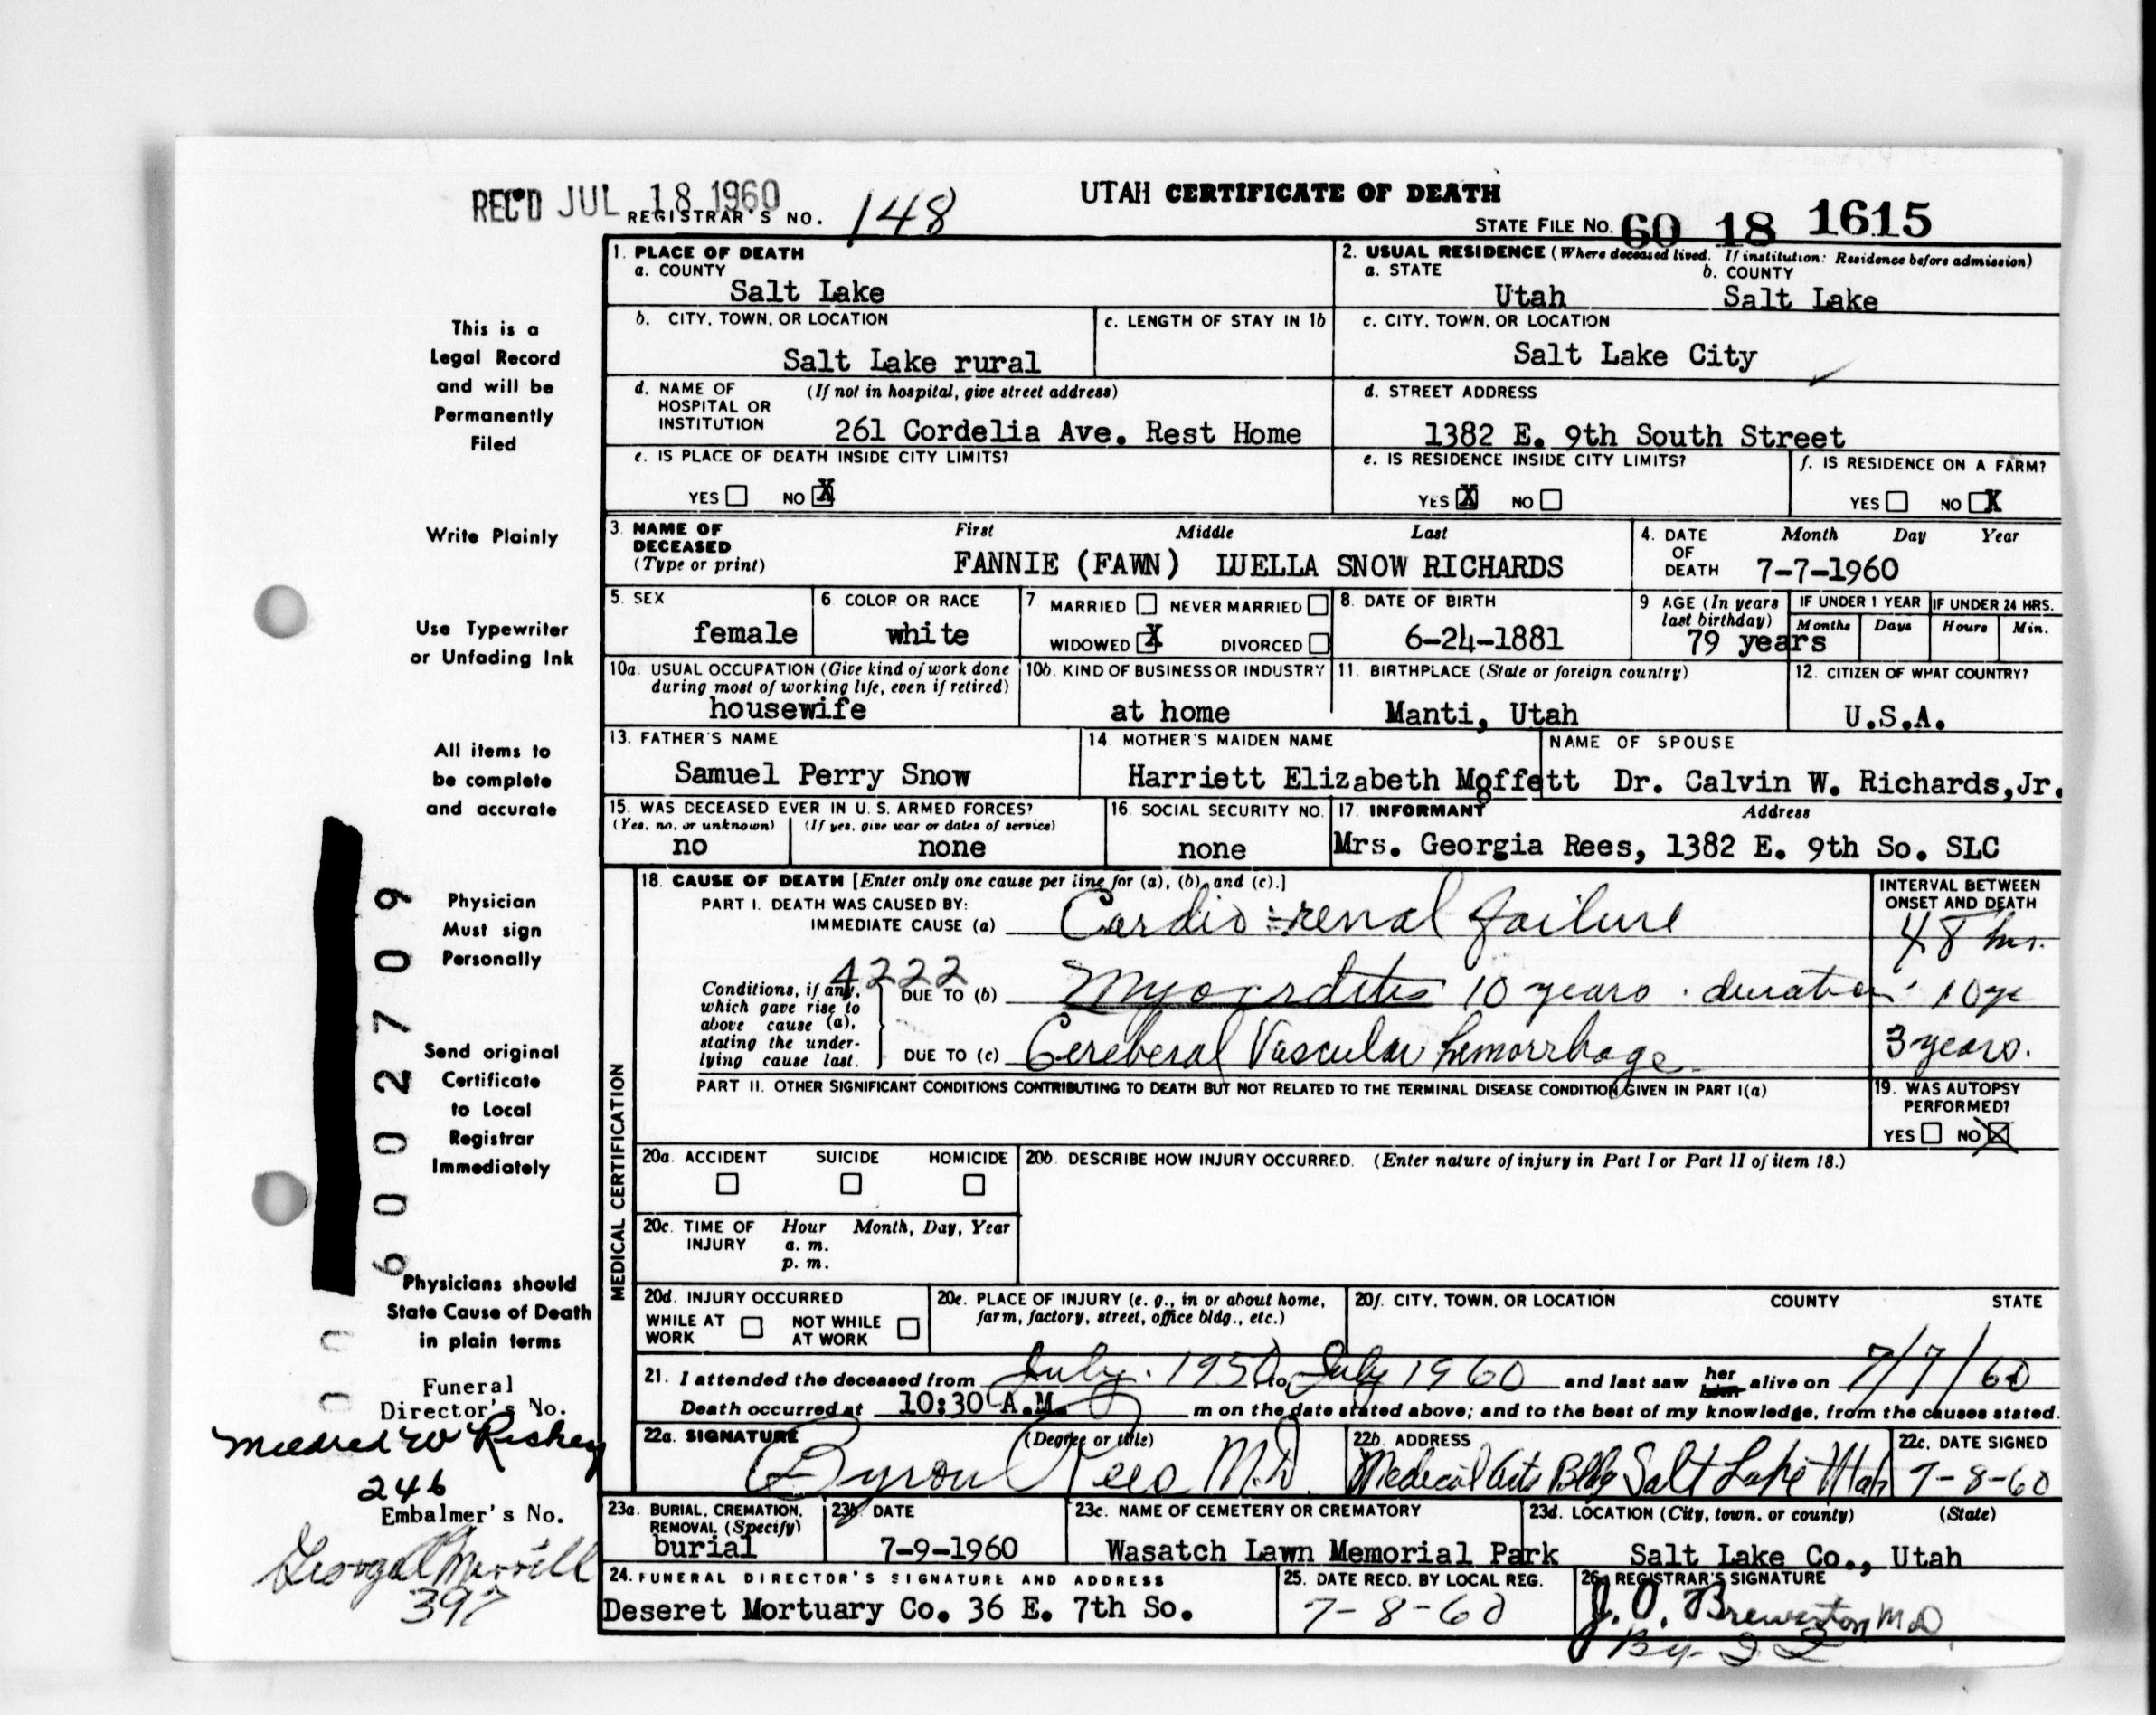 REC'D JUL 18 1960
REGISTRAR'S NO. 148
UTAH CERTIFICATE OF DEATH
STATE FILE NO. 60 18 1615
This is a
Legal Record
and will be
Permanently
Filed
Write Plainly
Use Typewriter
or Unfading Ink
All items to
be complete
and accurate
Physician
Must sign
Personally
Send original
Certificate
to Local
Registrar
Immediately
Physicians should
State Cause of Death
in plain terms
Funeral
Director's No.
Mildred W
246
Embalmer's No.
Merrill
397
6002709
1. PLACE OF DEATH
a. COUNTY
Salt Lake
2. USUAL RESIDENCE (Where deceased lived. If institution: Residence before admission)
a. STATE b. COUNTY
Utah Salt Lake
b. CITY, TOWN, OR LOCATION
Salt Lake rural
c. LENGTH OF STAY IN 1b
c. CITY, TOWN, OR LOCATION
Salt Lake City
d. NAME OF (If not in hospital, give street address)
HOSPITAL OR
INSTITUTION 261 Cordelia Ave. Rest Home
d. STREET ADDRESS
1382 E. 9th South Street
e. IS PLACE OF DEATH INSIDE CITY LIMITS?
YES NO X
e. IS RESIDENCE INSIDE CITY LIMITS?
YES X NO
f. IS RESIDENCE ON A FARM?
YES NO X
3. NAME OF First Middle Last
DECEASED
(Type or print) FANNIE (FAWN) LUELLA SNOW RICHARDS
4. DATE Month Day Year
OF
DEATH 7-7-1960
5. SEX
female
6. COLOR OR RACE
white
7 MARRIED NEVER MARRIED
WIDOWED X DIVORCED
8. DATE OF BIRTH
6-24-1881
9 AGE (In years
last birthday)
79 years
IF UNDER 1 YEAR
Months Days
IF UNDER 24 HRS.
Hours Min.
10a. USUAL OCCUPATION (Give kind of work done
during most of working life, even if retired)
housewife
10b. KIND OF BUSINESS OR INDUSTRY
at home
11. BIRTHPLACE (State or foreign country)
Manti, Utah
12. CITIZEN OF WHAT COUNTRY?
U.S.A.
13. FATHER'S NAME
Samuel Perry Snow
14. MOTHER'S MAIDEN NAME
Harriett Elizabeth Moffett
NAME OF SPOUSE
Dr. Calvin W. Richards,Jr.
15. WAS DECEASED EVER IN U. S. ARMED FORCES?
(Yes, no, or unknown) (If yes, give war or dates of service)
no none
16. SOCIAL SECURITY NO.
none
17. INFORMANT Address
Mrs. Georgia Rees, 1382 E. 9th So. SLC
MEDICAL CERTIFICATION
18. CAUSE OF DEATH [Enter only one cause per line for (a), (b), and (c).]
PART I. DEATH WAS CAUSED BY:
IMMEDIATE CAUSE (a) Cardio-renal failure
INTERVAL BETWEEN
ONSET AND DEATH
48 hrs.
4222
Conditions, if any,
which gave rise to
above cause (a),
stating the under-
lying cause last.
DUE TO (b) Myocarditis 10 years duration 10 yr
DUE TO (c) Cereberal Vascular hemorrhage 3 years.
PART II. OTHER SIGNIFICANT CONDITIONS CONTRIBUTING TO DEATH BUT NOT RELATED TO THE TERMINAL DISEASE CONDITION GIVEN IN PART I(a)
19. WAS AUTOPSY
PERFORMED?
YES NO X
20a. ACCIDENT SUICIDE HOMICIDE
20b. DESCRIBE HOW INJURY OCCURRED. (Enter nature of injury in Part I or Part II of item 18.)
20c. TIME OF Hour Month, Day, Year
INJURY a. m.
p. m.
20d. INJURY OCCURRED
WHILE AT NOT WHILE
WORK AT WORK
20e. PLACE OF INJURY (e. g., in or about home,
farm, factory, street, office bldg., etc.)
20f. CITY, TOWN, OR LOCATION COUNTY STATE
21. I attended the deceased from July. 1950 to July 1960 and last saw her him alive on 7/7/60
Death occurred at 10:30 A.M. m on the date stated above; and to the best of my knowledge, from the causes stated.
22a. SIGNATURE (Degree or title)
Byron Rees M.D.
22b. ADDRESS
Medical Arts Bldg Salt Lake Utah
22c. DATE SIGNED
7-8-60
23a. BURIAL, CREMATION,
REMOVAL (Specify)
burial
23b. DATE
7-9-1960
23c. NAME OF CEMETERY OR CREMATORY
Wasatch Lawn Memorial Park
23d. LOCATION (City, town, or county) (State)
Salt Lake Co., Utah
24. FUNERAL DIRECTOR'S SIGNATURE AND ADDRESS
Deseret Mortuary Co. 36 E. 7th So.
25. DATE RECD. BY LOCAL REG.
7-8-60
26. REGISTRAR'S SIGNATURE
J. O. Brewerton M.D.
By